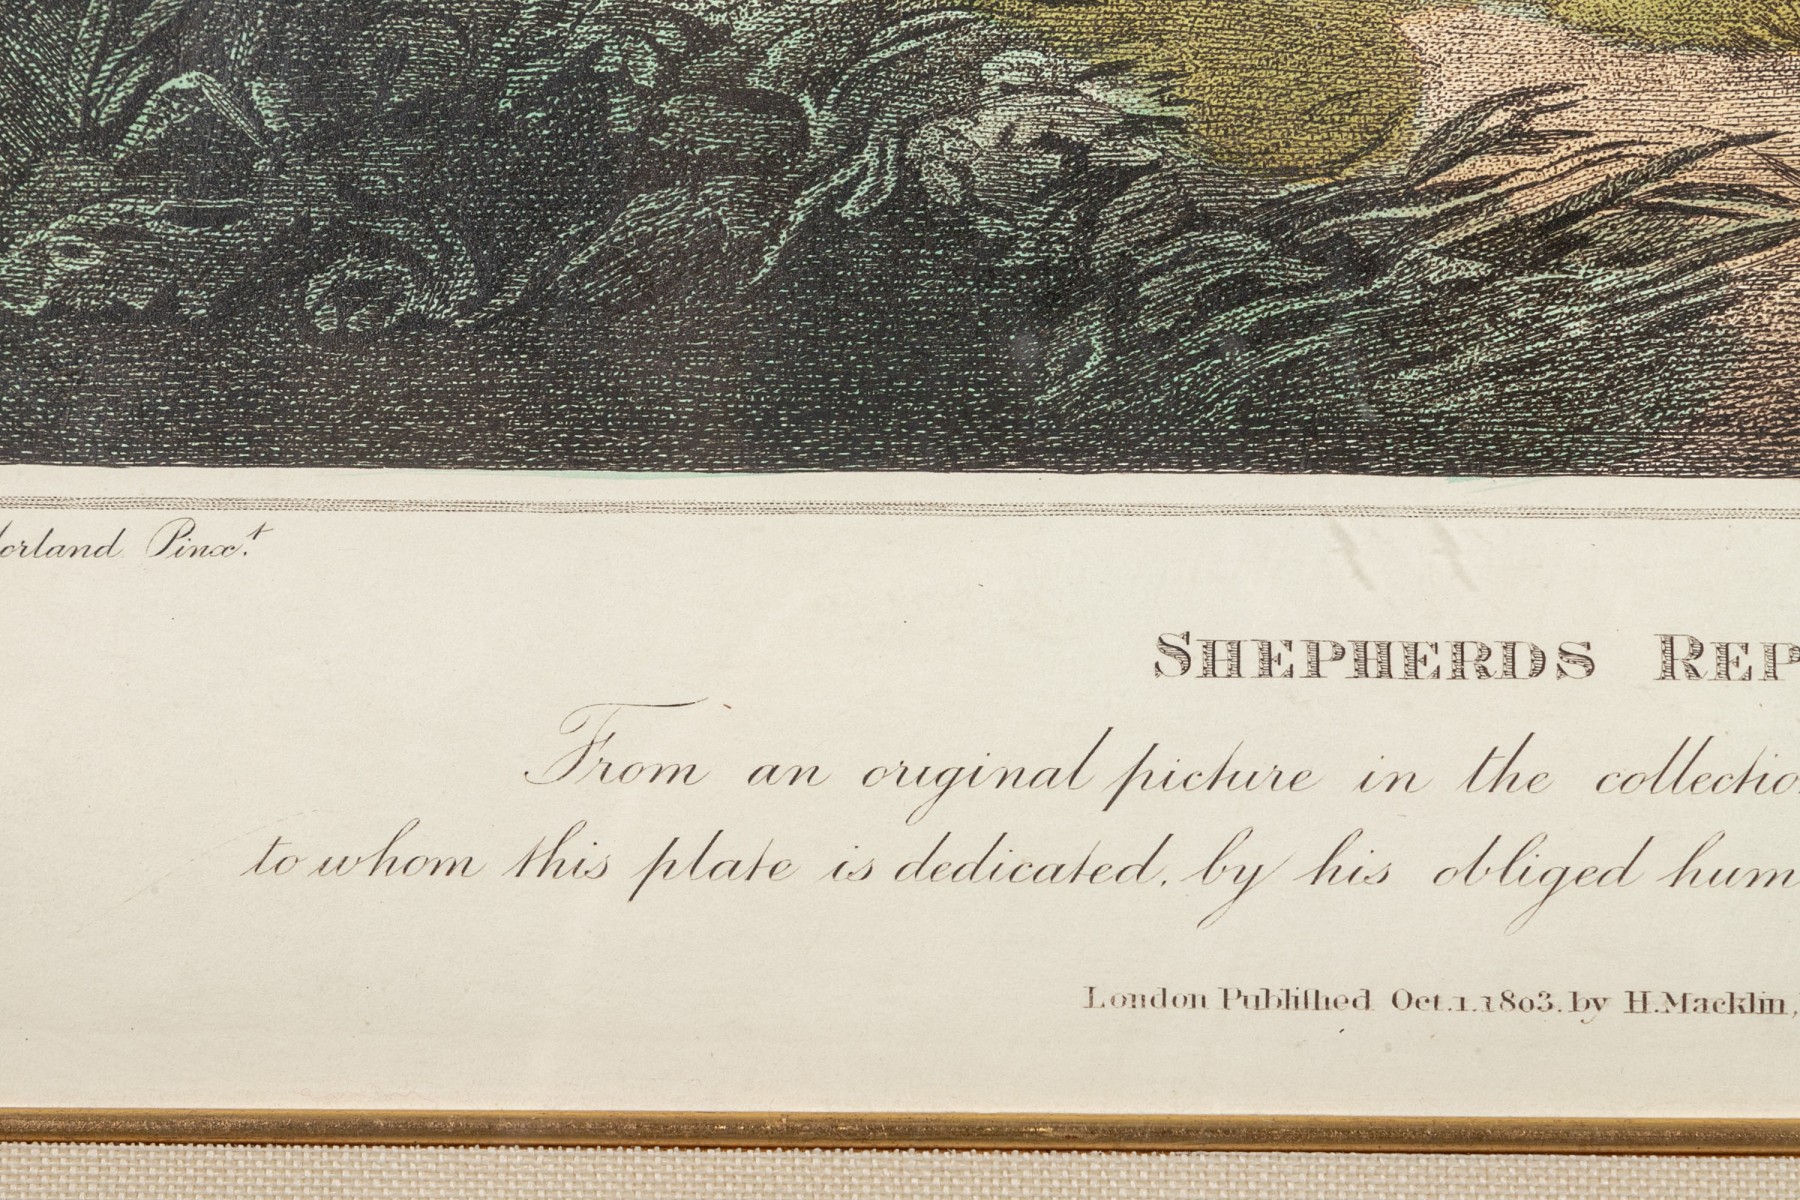 orland Pinx.t
SHEPHERDS REP
From an original picture in the collectio
to whom this plate is dedicated, by his obliged hum
London Publiſhed Oct.1.1803.by H.Macklin,